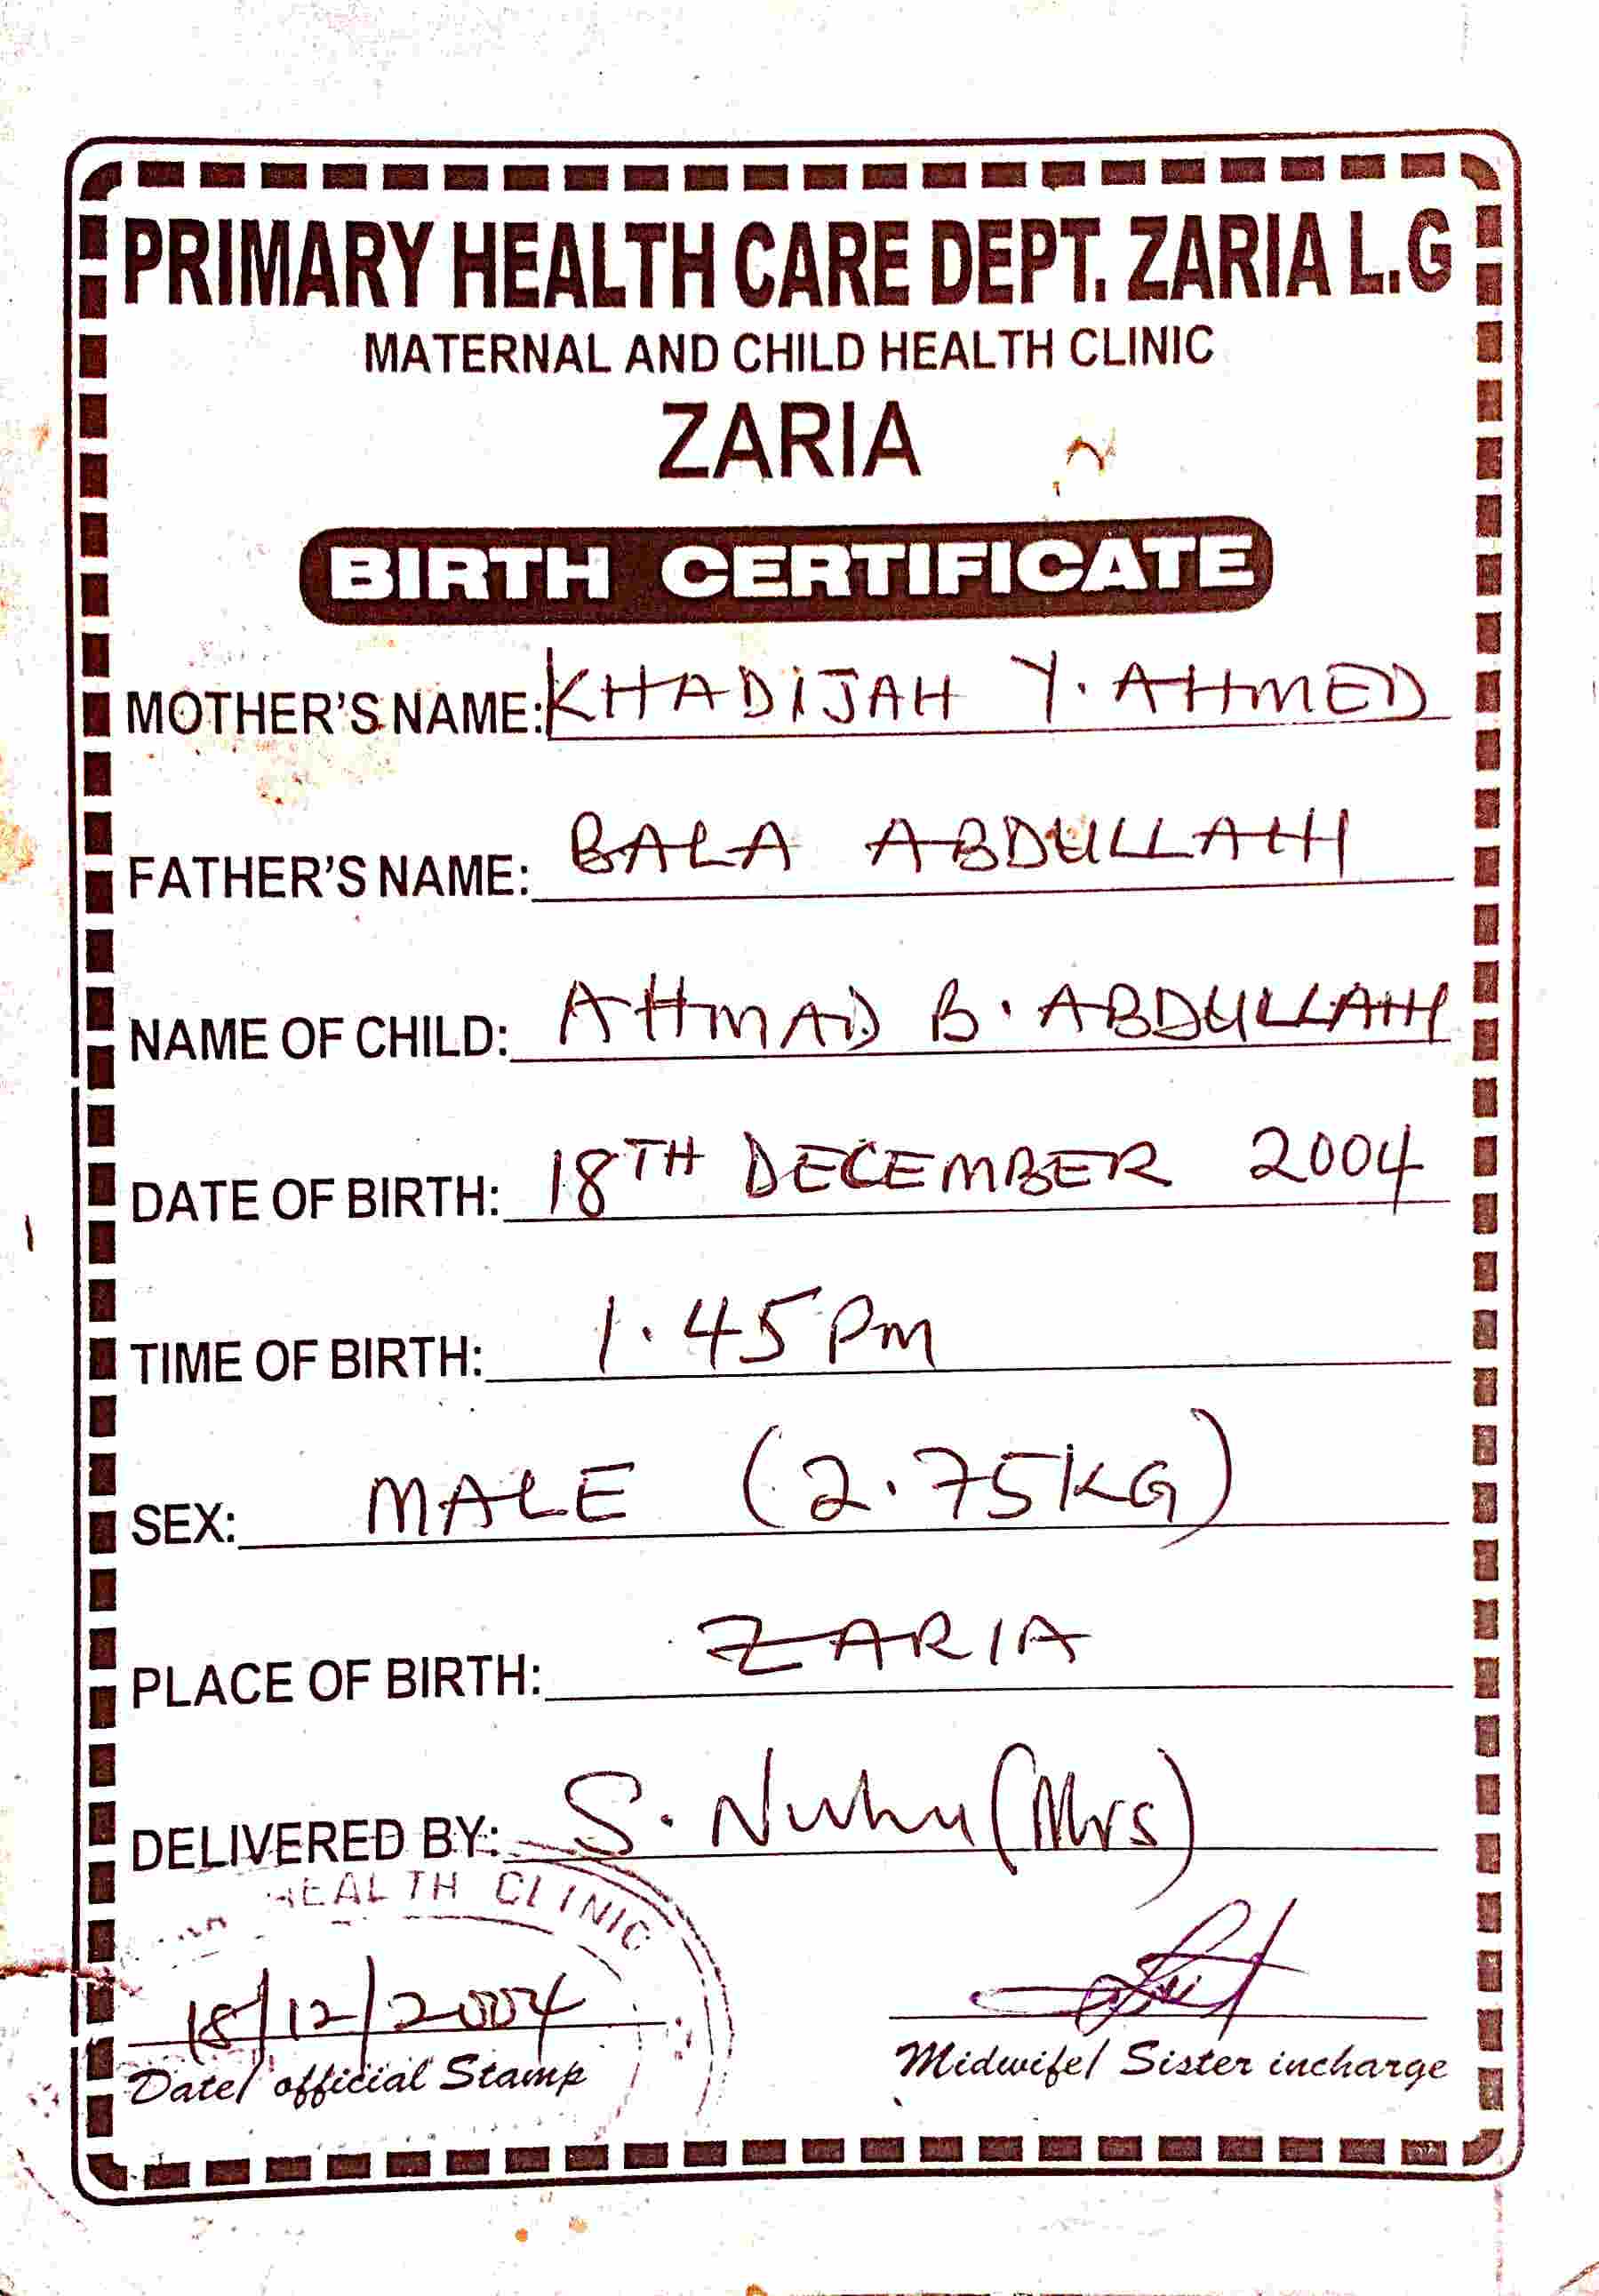 PRIMARY HEALTH CARE DEPT. ZARIA L.G
MATERNAL AND CHILD HEALTH CLINIC
ZARIA
BIRTH CERTIFICATE
MOTHER'S NAME: KHADIJAH Y. AHMED
FATHER'S NAME: BALA ABDULLAHI
NAME OF CHILD: AHMAD B. ABDULLAHI
DATE OF BIRTH: 18TH DECEMBER 2004
TIME OF BIRTH: 1.45Pm
SEX: MALE (2.75KG)
PLACE OF BIRTH: ZARIA
DELIVERED BY: S. Nuhu (Mrs)
HEALTH CLINIC
18/12/2004
Date/ official Stamp
Midwife/ Sister incharge